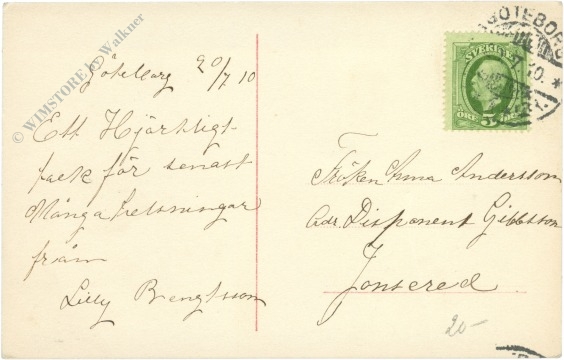 Göteborg 20/7 10
Ett Hjärtligt
tack för senast
Många helsningar
från
Lilly Bengtsson
Fröken Anna Andersson
Adr. Disponent Gibbsson
Jonsered
SVERIGE
5 ÖRE 5
GÖTEBORG
20-
© WIMSTORE by Walkner